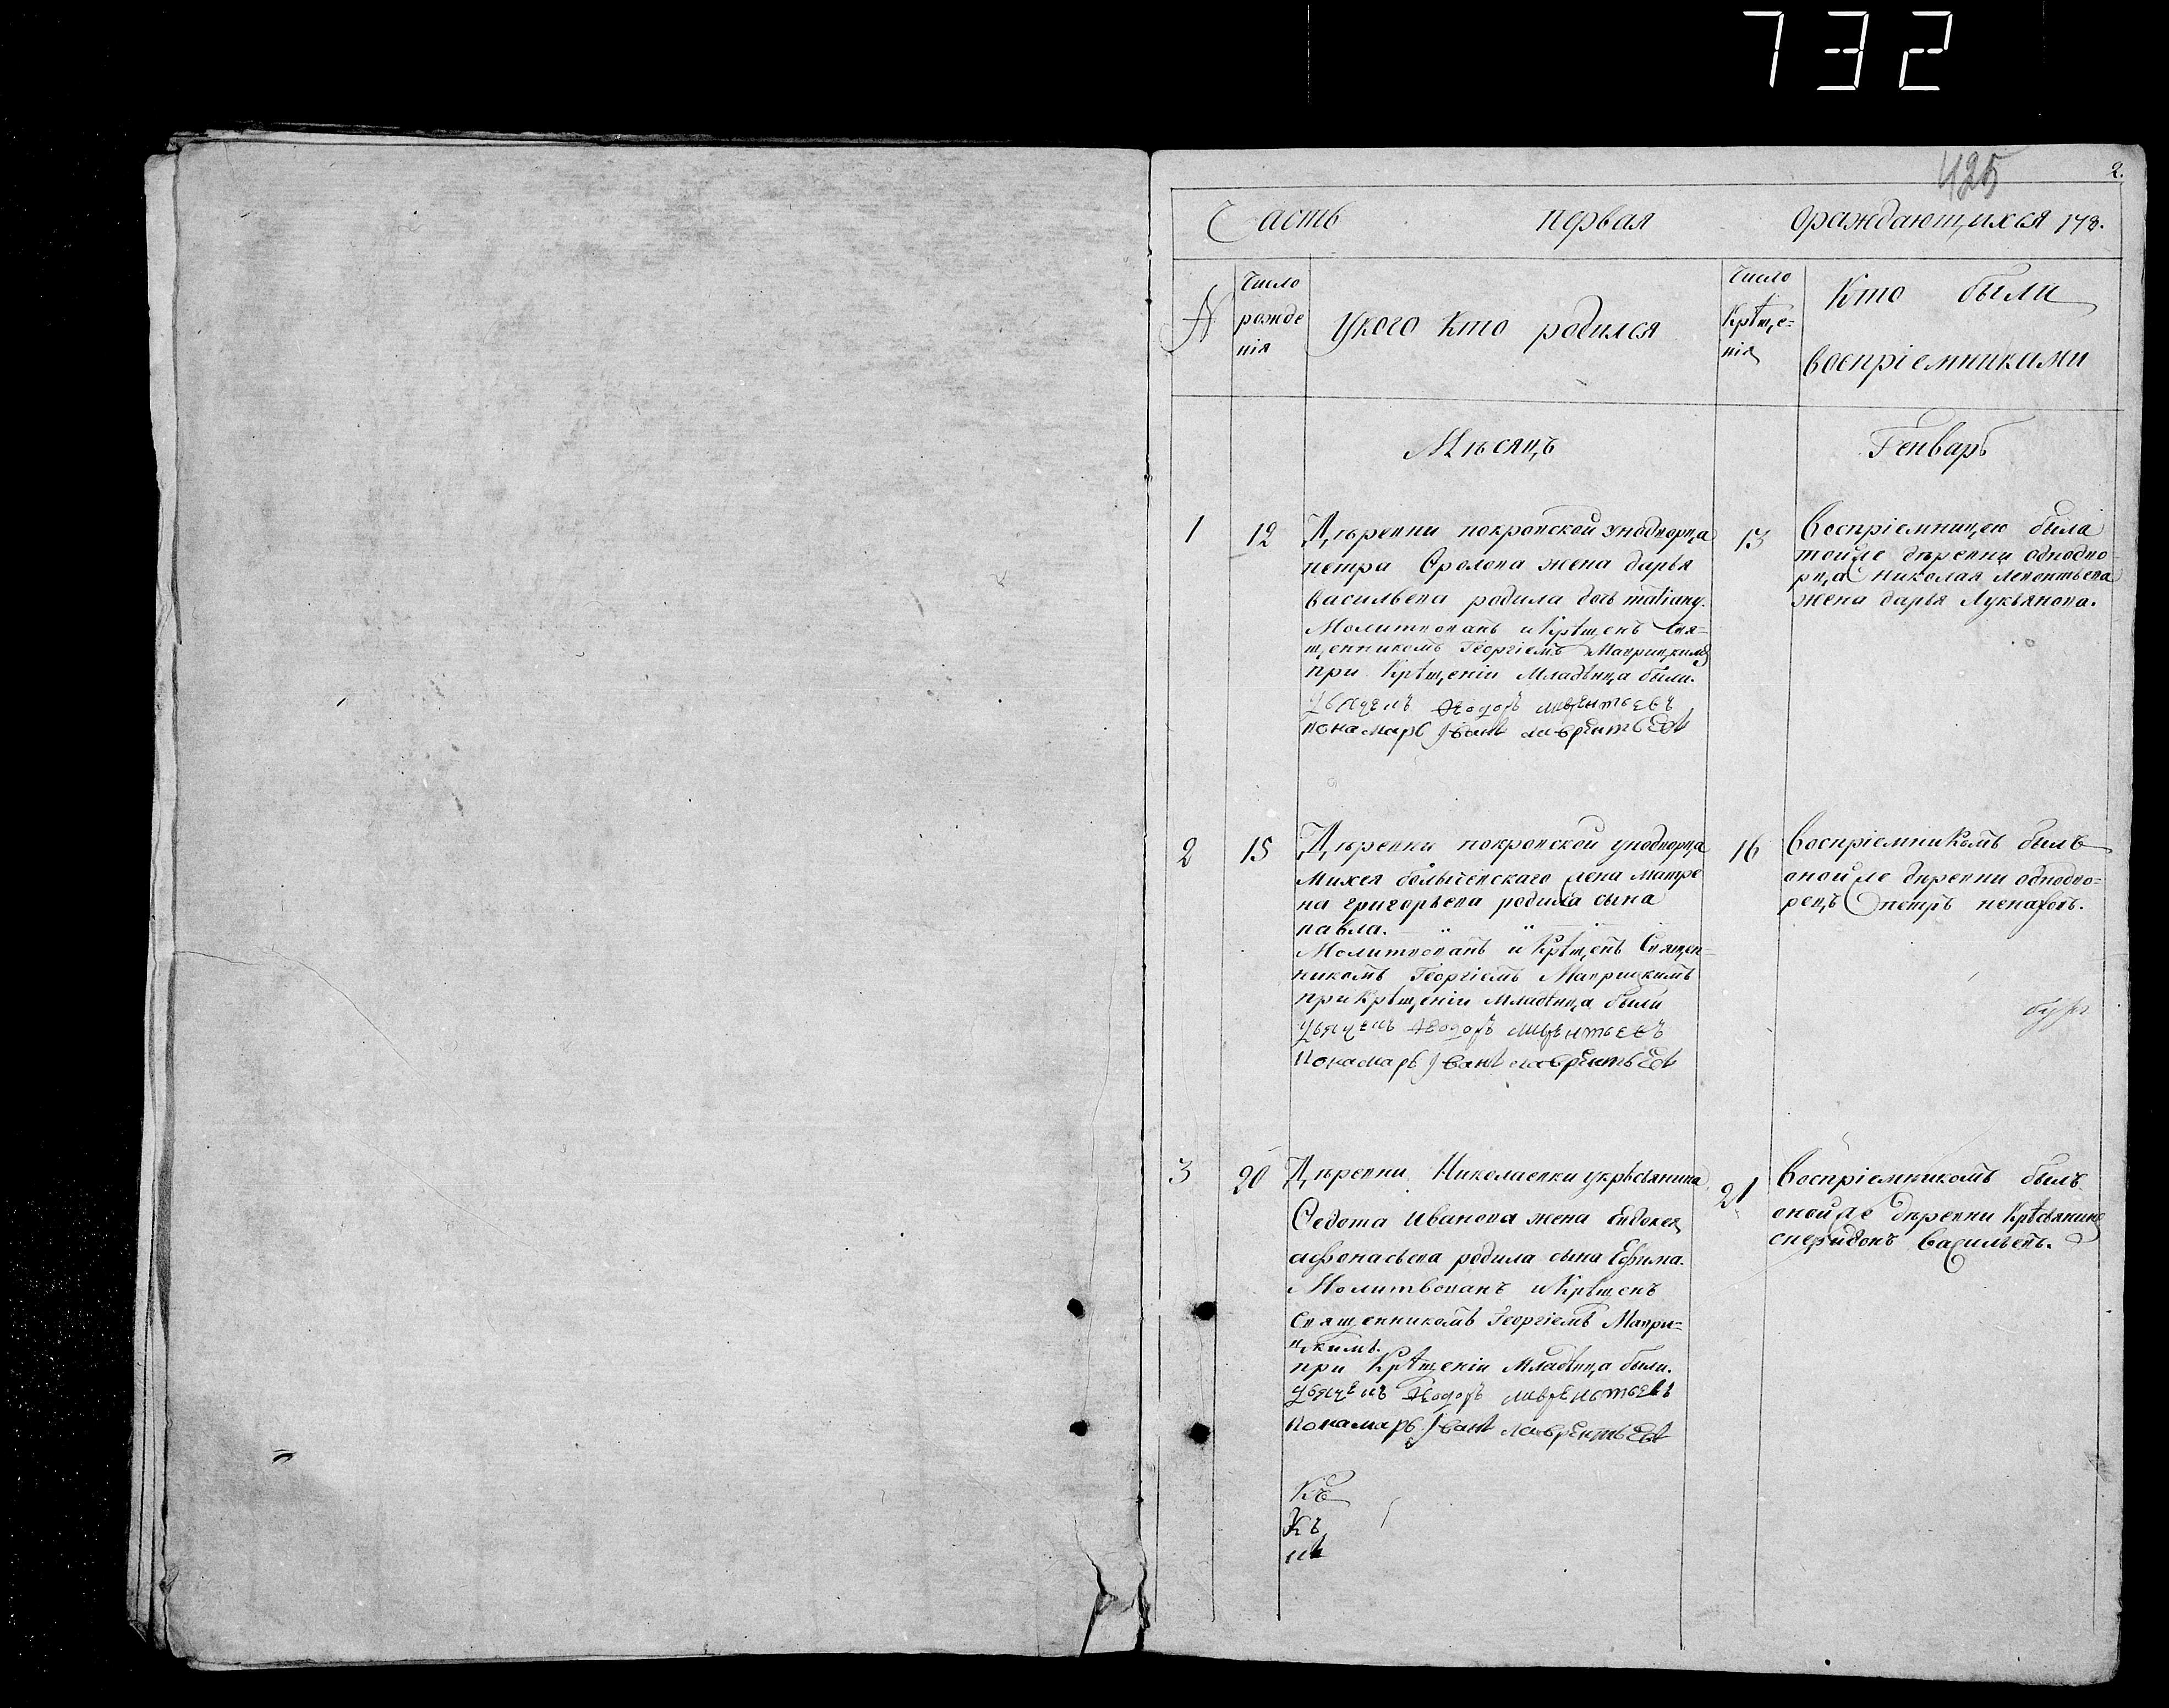 732
425
2.
Часть первая ораждающихся
№
Число рожденія
Укого Кто родился
Число Крѣщенія
Кто были воспріемниками
Мѣсяцъ Генварь
1 12
Дѣревни покровской уноднодворца
петра Фролова жена дарья
васильева родила дочь татiану.
Молитвованъ и Крѣщенъ Свя=
щенникомъ Георгіемъ Маврицкимъ
при Крѣщеніи Младѣнца были.
Ѳеодоръ лаврентьевъ
понамарь Иванъ лаврентьевъ
13
Воспріемницею была
тойже дѣревни однодво=
рца николая Леонтьева
жена дарья Лукьянова.
2 15
Дѣревни покровской
Михея жена матре
на григорьева родила сына
павла.
Молитвованъ и Крѣщенъ Священ=
никомъ Георгіемъ Маврицкимъ
при Крѣщеніи младѣнца были
Ѳеодоръ лаврентьевъ
Понамарь Иванъ лаврентьевъ
16
Воспріемникомъ былъ
онойже дѣревни однодво=
рецъ петръ
3 20
Дѣревни Николаевки укрѣсьянина
Федота Иванова жена Евдокея
афонасьева родила сына Ефима.
Молитвованъ и Крѣщенъ
Священникомъ Георгіемъ Маври=
цкимъ.
при Крѣщеніи Младѣнца были.
Ѳеодоръ лаврентьевъ
Понамарь Иванъ лаврентьевъ
21
Воспріемникомъ былъ
онойже дѣревни Крѣсьянинъ
спиридонъ Васильевъ.
Къ
Къ